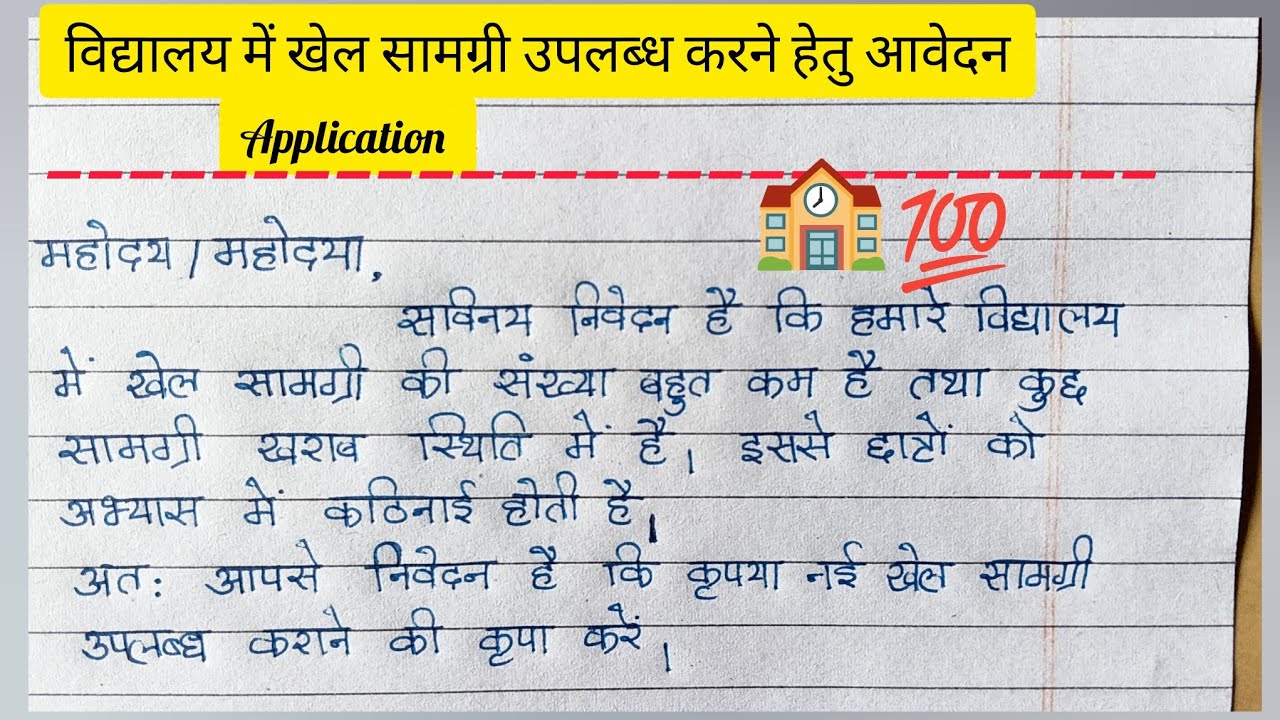 विद्यालय में खेल सामग्री उपलब्ध करने हेतु आवेदन
Application
100
महोदय / महोदया,
सविनय निवेदन है कि हमारे विद्यालय
में खेल सामग्री की संख्या बहुत कम है तथा कुछ
सामग्री खराब स्थिति में है। इससे छात्रों को
अभ्यास में कठिनाई होती है।
अत: आपसे निवेदन है कि कृपया नई खेल सामग्री
उपलब्ध कराने की कृपा करें।